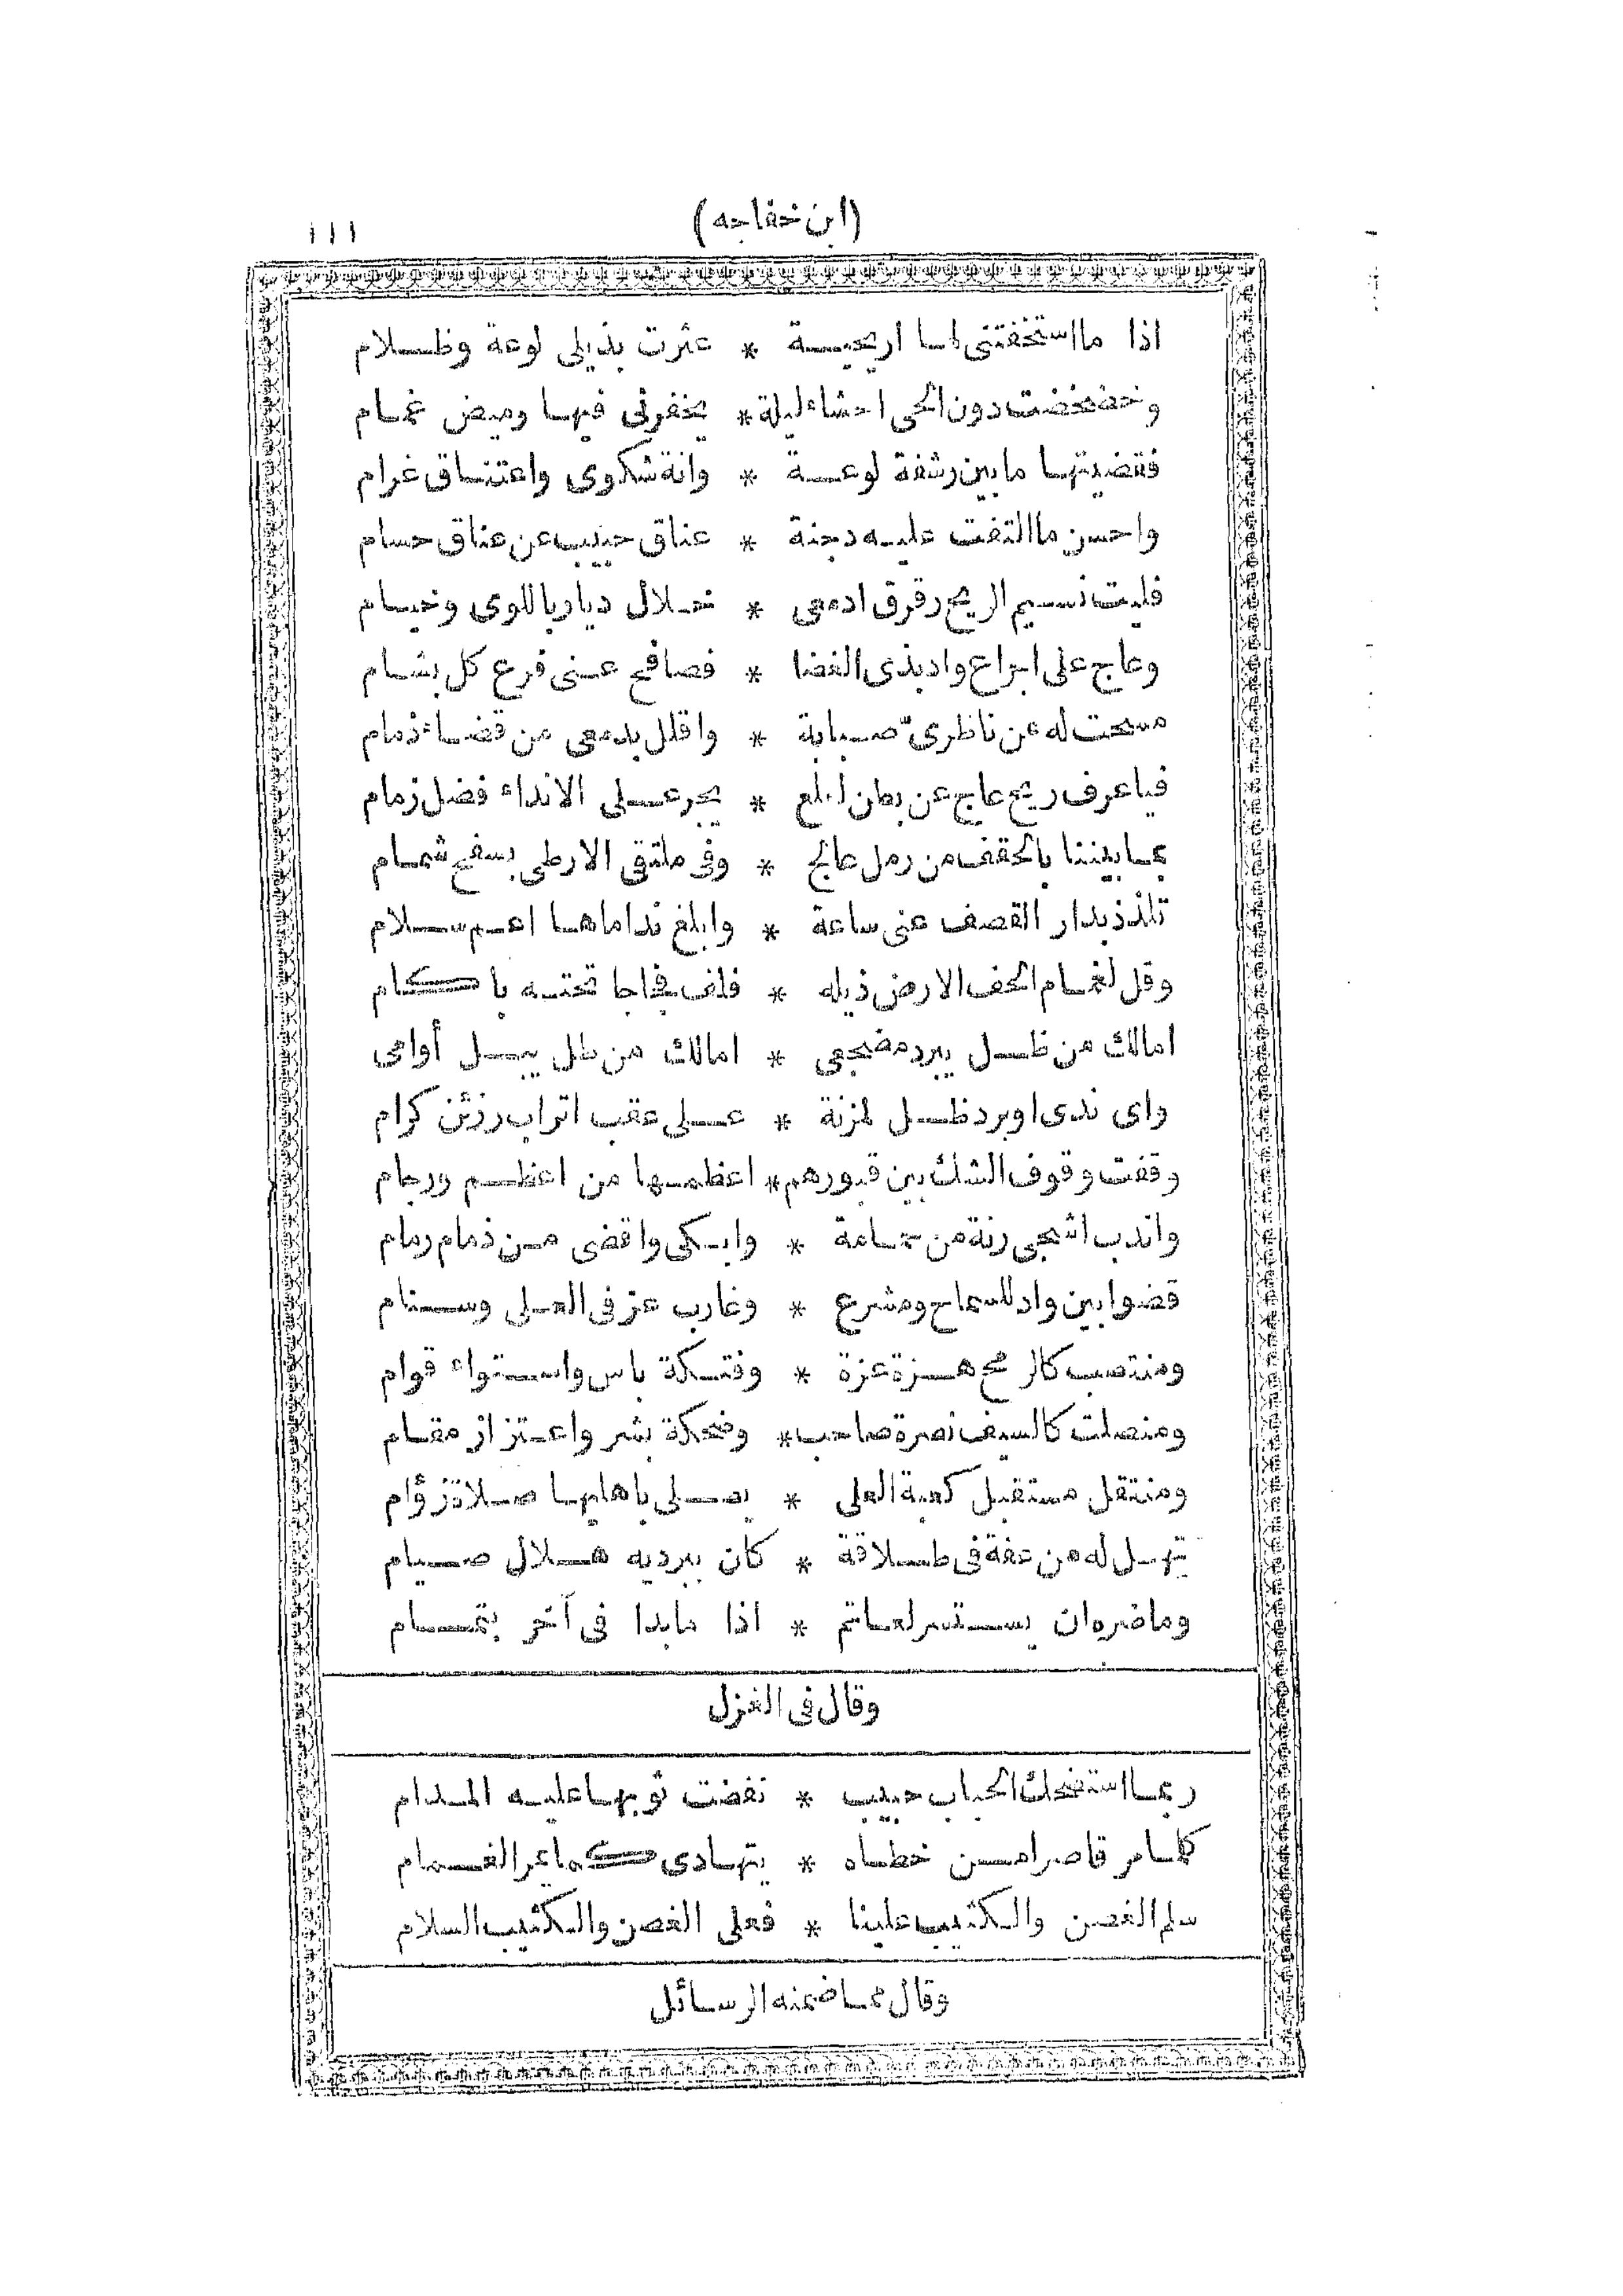 (ابن خفاجه)
١١١
اذا ما استخفتنى لها اريحيـة * عثرت بذيلى لوعة وظـلام
وخضخضت دون الحى احشاء ليلة * يخفرنى فيها وميض غمام
فقضيتها ما بين رشفة لوعـة * وانة شكوى واعتناق غرام
واحسن ما التفت عليه دجنة * عناق حبيب عن عناق حسام
فليت نسيم الريح رقرق ادمعى * خلال ديار باللوى وخيام
وعاج على اجراع واد بذى الغضا * فصافح عنى فرع كل بشام
مسحت له عن ناظرىّ صبابة * واقلل بدمعى من قضاء ذمام
فيا عرف ريح عاج عن بطن لعلع * يجر على الانداء فضل زمام
بما بيننا بالحقف من رمل عالج * وفى ملتقى الارطى بسفح شمام
تلذذ بدار القصف عنى ساعة * وابلغ نداماها اعم سلام
وقل لغمام الحف الارض ذيله * فلف فجاجا تحته باكام
امالك من ظل يبرد مضجعى * امالك من طل يبل أوامى
واى ندى او برد ظل لمزنة * على عقب اتراب رزئن كرام
وقفت وقوف الشك بين قبورهم * اعظمها من اعظم ورجام
واندب اشجى رنة من حمامة * وابكى واقضى من ذمام رمام
قضوا بين واد للسماح ومشرع * وغارب عز فى العلى وسنام
ومنتصب كالرمح هزة عزة * وفتكة باس واستواء قوام
ومنصلت كالسيف نصرة صاحب * وضحكة بشر واعتزاز مقام
ومنتقل مستقبل كعبة العلى * يصلى باهليها صلاة زؤام
تهل له من عفة فى طلاقة * كان ببرديه هلال صيام
وما ضره ان يستسر لعاتم * اذا ما بدا فى آخر بتمام
وقال فى الغزل
ربما استضحك الحباب حبيب * نفضت ثوبها عليه المدام
كلما مر قاصرا من خطاه * يتهادى كما يمر الغمام
سلم الغصن والكثيب علينا * فعلى الغصن والكثيب السلام
وقال مما ضمنه الرسائل